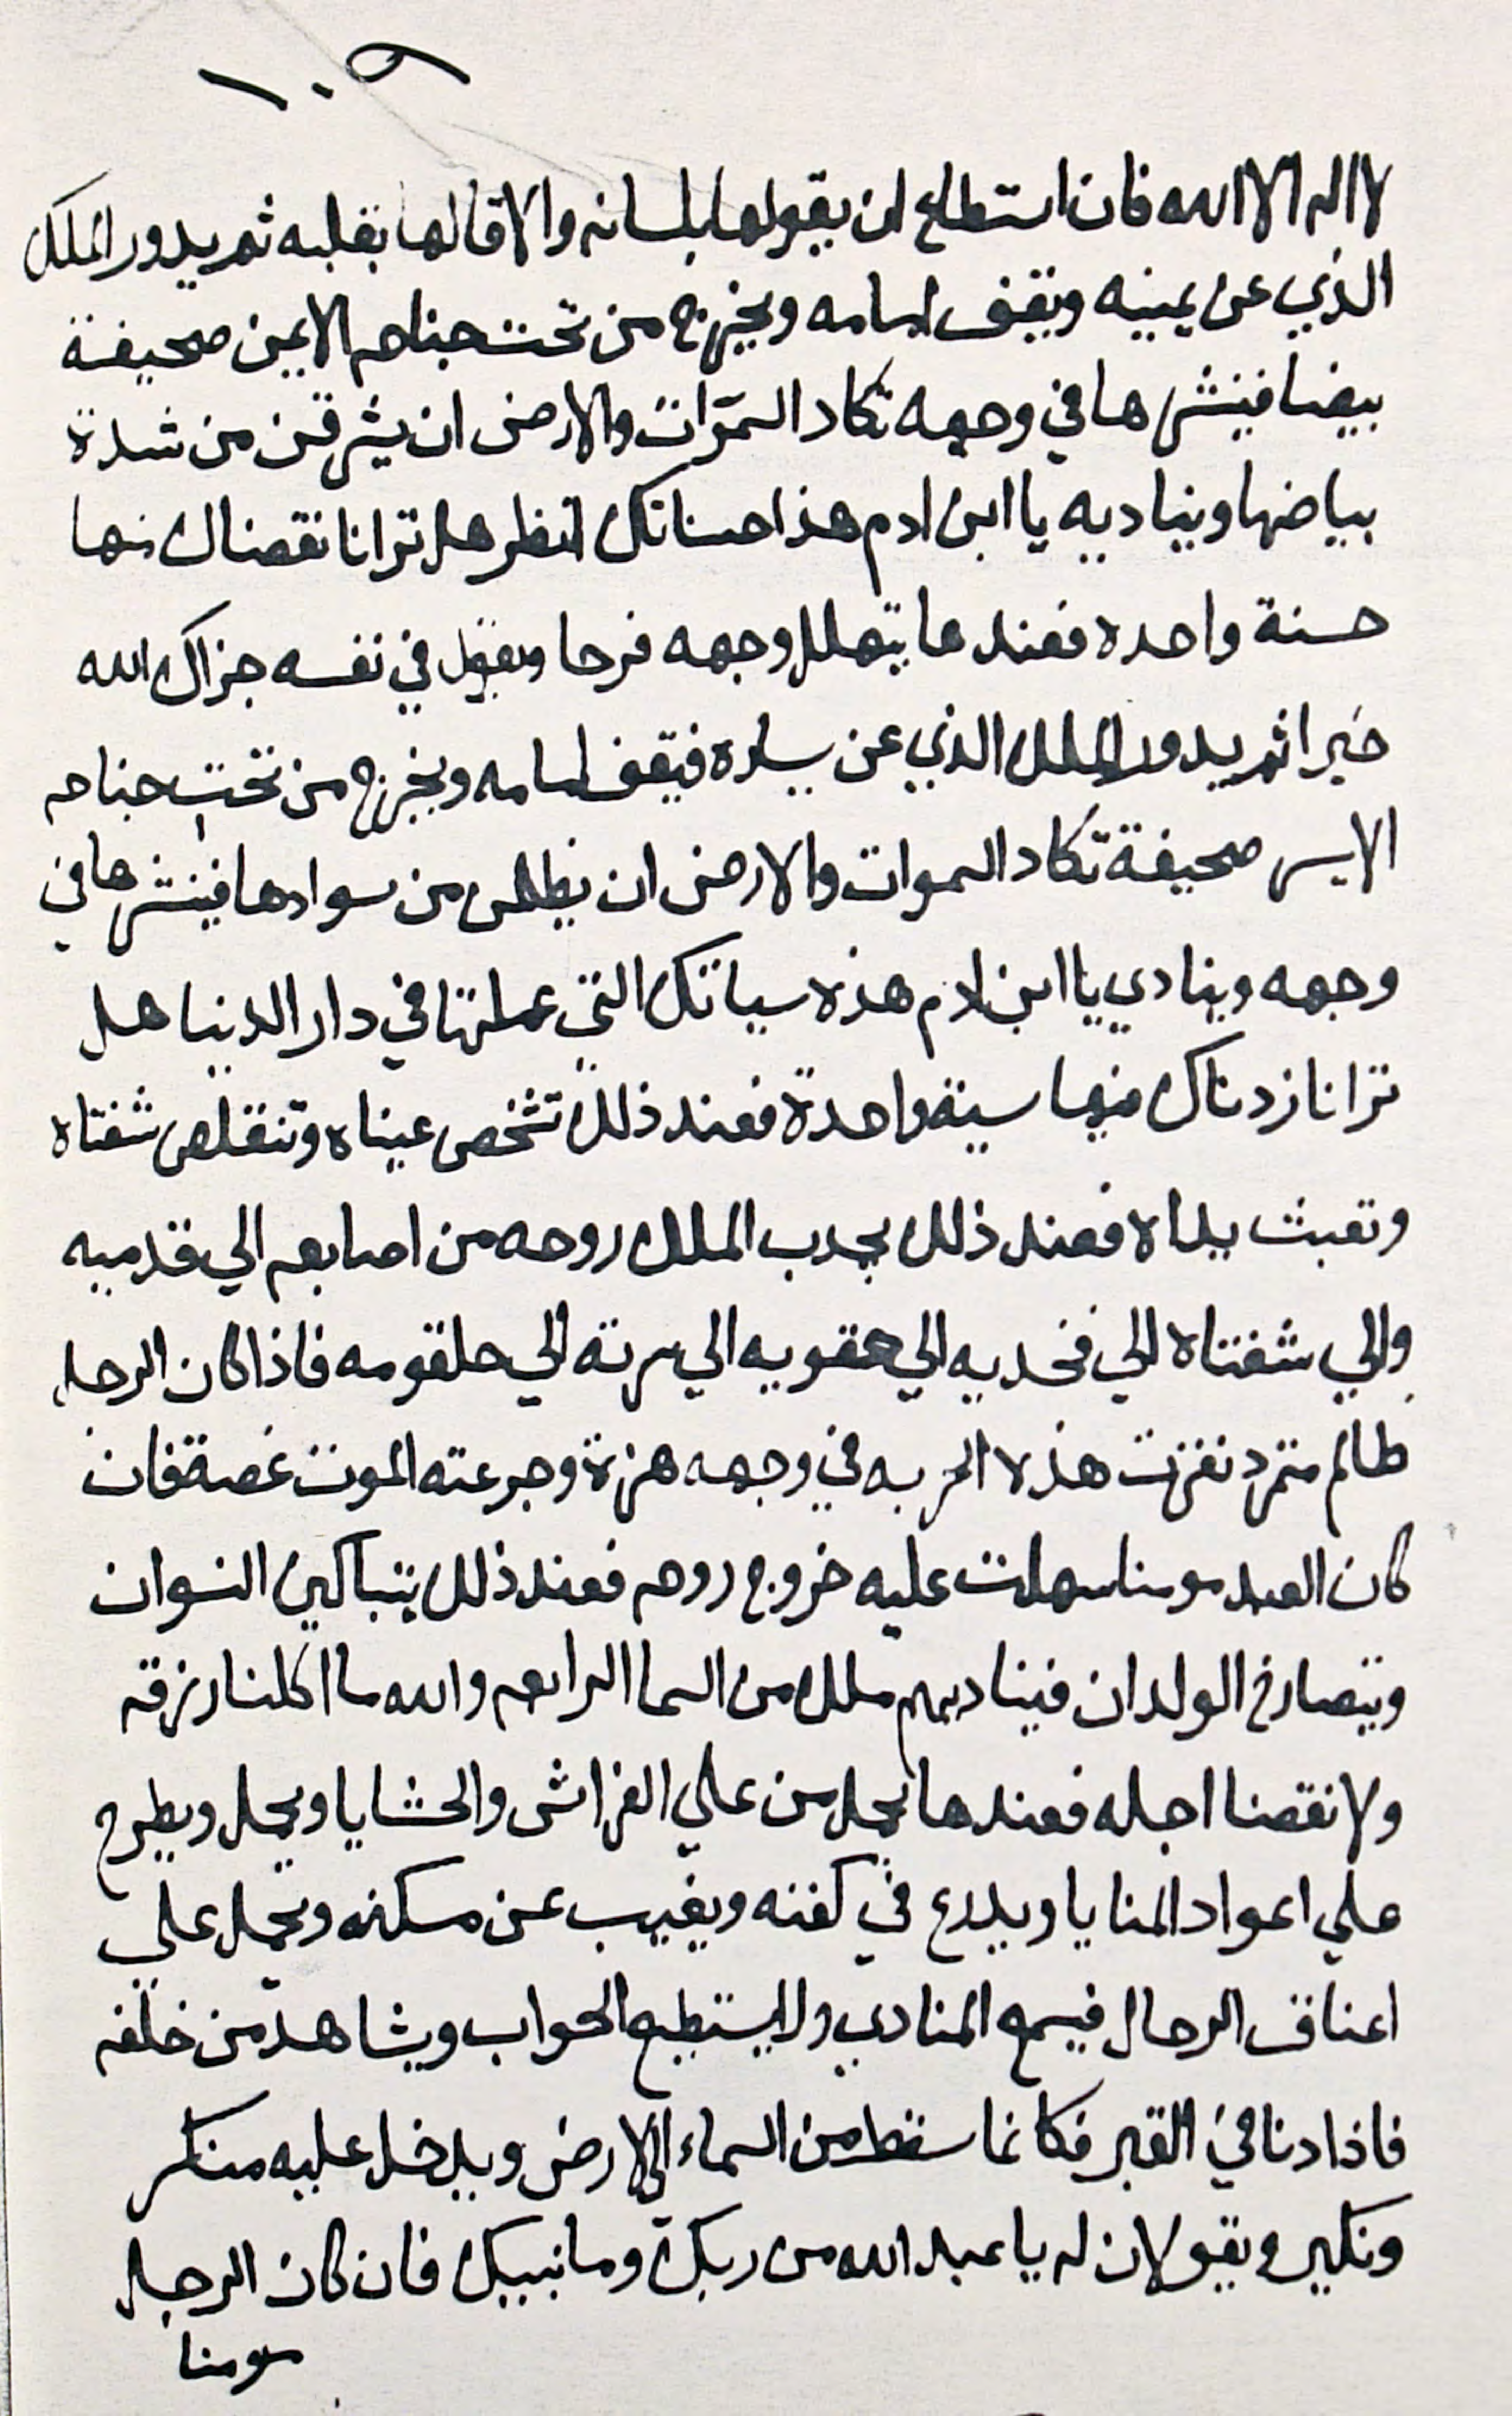 ١٠٩
لا اله الا الله فان استطاع ان يقولها بلسانه والا قالها بقلبه ثم يدور الملك
الذي عن يمينه ويقف امامه ويخرج من تحت جناحه الايمن صحيفة
بيضا فينشرها في وجهه تكاد السموات والارض ان يشرقن من شدة
بياضها ويناديه يا ابن ادم هذا حسناتك انظر هل ترانا نقصناك منها
حسنة واحده فعندها يتهلل وجهه فرحا ويقول في نفسه جزاك الله
خيرا ثم يدور الملك الذي عن يساره فيقف امامه ويخرج من تحت جناحه
الايسر صحيفة تكاد السموات والارض ان يظلمن من سوادها فينشرها في
وجهه وينادي يا ابن ادم هذه سياتك التي عملتها في دار الدنيا هل
ترانا زدناك فيها سيئة واحدة فعند ذلك تشخص عيناه وتنقلص شفتاه
وتعبث يداه فعند ذلك يجدب الملك روحه من اصابعه الي قدميه
والي شفتاه الي فخديه الي حقويه الي سرته الي حلقومه فاذا كان الرجل
ظالم متمرد نفزت هذه الحربه في وجهه هزة وجرعته الموت غصة فان
كان العبد مومنا سهلت عليه خروج روحه فعند ذلك يتباكين النسوان
ويتصارخ الولدان فيناديهم ملك من السما الرابعه والله ما اكلنا رزقه
ولا نقصنا اجله فعندها يحمل من علي الفراش والحشايا ويحمل ويطرح
علي اعواد المنايا ويدرع في كفنه ويغيب عن مسكنه ويحمل علي
اعناق الرجال فيسمع المنادي ولا يستطيع الجواب ويشاهد من خلفه
فاذا دنا من القبر فكانما سقط من السماء الي الارض ويدخل عليه منكر
ونكير ويقولان له يا عبد الله من ربك وما نبيك فان كان الرجل
مومنا